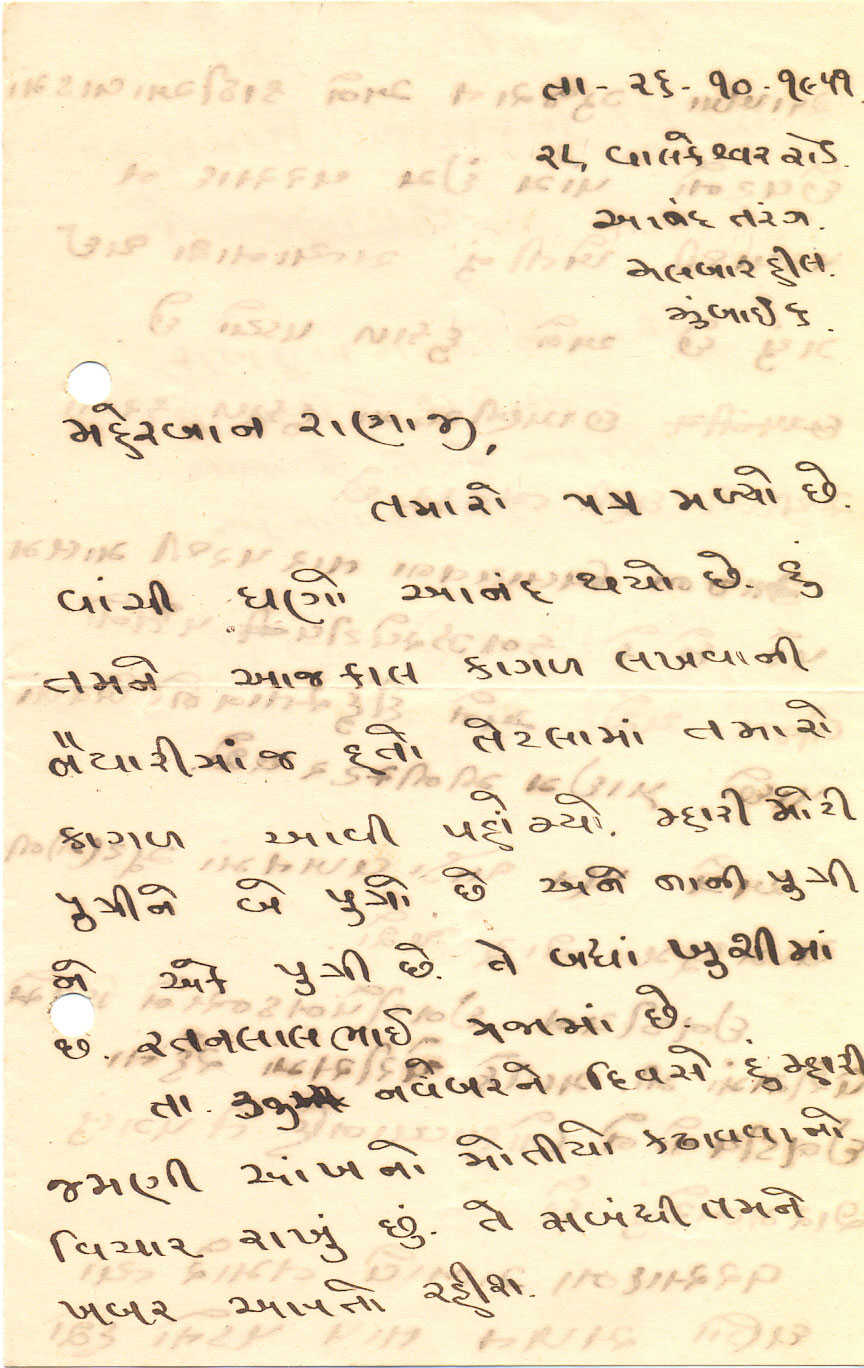 તા - ૨૬ - ૧૦ - ૧૯૫૧
૨૮, વાલકેશ્વર રોડ.
આનંદ તરંગ.
મલબાર હીલ.
મુંબાઈ ૬.
મહેરબાન રાણાજી,
તમારો પત્ર મળ્યો છે.
વાંચી ઘણો આનંદ થયો છે. હું
તમને આજકાલ કાગળ લખવાની
તૈયારીમાંજ હતો તેટલામાં તમારો
કાગળ આવી પહોંચ્યો. મ્હારી મોટી
પુત્રીને બે પુત્રો છે અને નાની પુત્રી
ને એક પુત્રી છે. તે બધાં ખુશીમાં
છે. રતનલાલભાઈ મજામાં છે.
તા. નવેંબરને દિવસે હું મ્હારી
જમણી આંખનો મોતીયો કઢાવવાનો
વિચાર રાખું છું. તે સબંધી તમને
ખબર આપતો રહીશ.